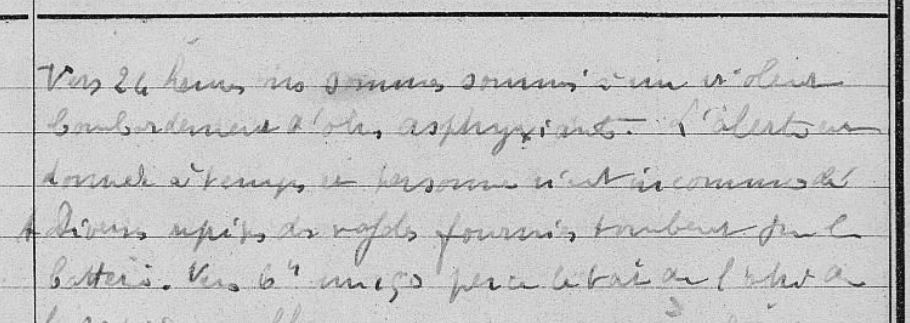 Vers 24 heures nous sommes soumis à un violent
bombardement d'obus asphyxiants. L'alerte est
donnée à temps et personne n'est incommodé
A Diverses reprises des rafales fournies tombent sur la
batterie. Vers 6h un 150 perce le toit de l'abri de